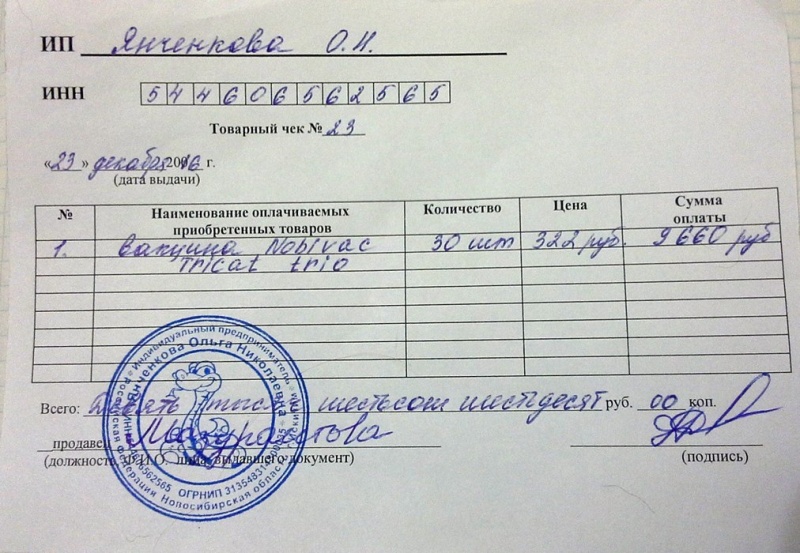 ИП Янченкова О.Н.
ИНН 544606562565
Товарный чек № 23
«23» декабря 2016 г.
(дата выдачи)
№ Наименование оплачиваемых приобретенных товаров Количество Цена Сумма оплаты
1. Вакцина Nobivac 30 шт 322 руб. 9 660 руб
Tricat trio
Всего: Девять тысяч шестьсот шестьдесят руб. 00 коп.
продавец
(должность, Ф.И.О. лица, выдавшего документ) (подпись)
Индивидуальный предприниматель
Янченкова Ольга Николаевна
Российская Федерации Новосибирская область
ОГРНИП